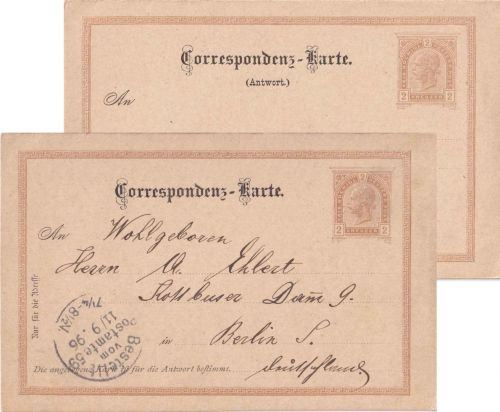 Correspondenz-Karte.
(Antwort.)
An
2
2 KREUZER 2
Correspondenz-Karte.
2
2 KREUZER 2
An Wohlgeboren
Herrn A. Ehlert
Kottbuser Dam̅ 9.
in Berlin S.
Deutschland
Nur für die Adresse
Bestellt
vom
Postamte 59
11/9.96
7¼-8½N.
Die angebogene Karte ist für die Antwort bestimmt.